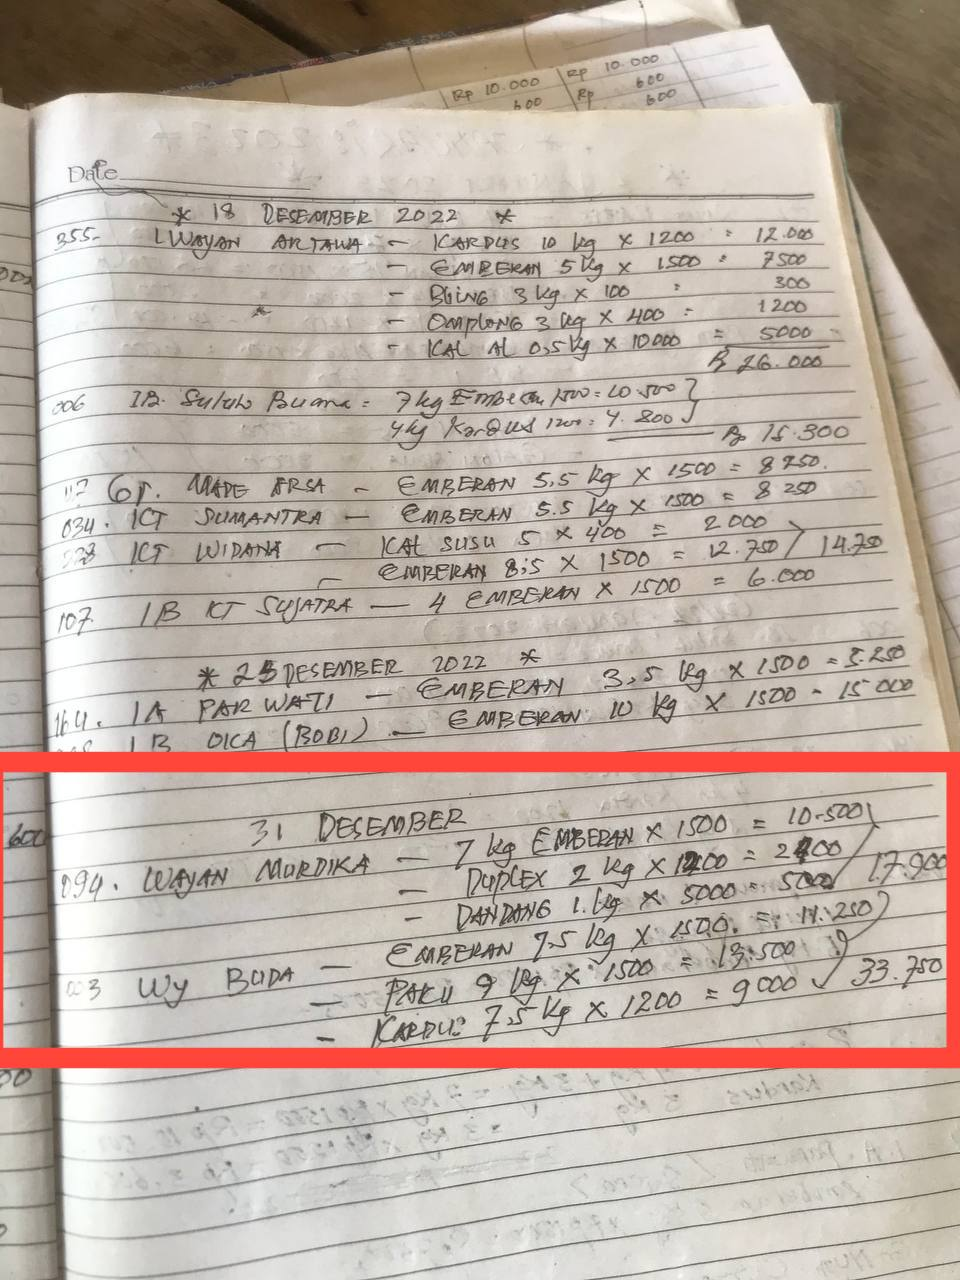 Rp 10.000 Rp 10.000
600 Rp 600
600
Date
* 18 DESEMBER 2022 *
355- I WAYAN ARTAWA - KARDUS 10 kg x 1200 = 12.000
- EMBERAN 5 kg x 1500 = 7500
- BLING 3 kg x 100 = 300
- OMPLONG 3 kg x 400 = 1200
- KAL AL 0,5 kg x 10000 = 5000
Rp 26.000
006 IB. Buana = 7 kg Emberan 1500 = 10.500
4 kg Kardus 1200 = 4.800
Rp 15.300
117 Gr. MADE ARSA - EMBERAN 5,5 kg x 1500 = 8250.
034. KT SUMANTRA - EMBERAN 5.5 kg x 1500 = 8250
028 KT WIDANA - KAL SUSU 5 x 400 = 2000
- EMBERAN 8,5 x 1500 = 12.750 14.750
107 IB KT SUJATRA - 4 EMBERAN x 1500 = 6.000
* 25 DESEMBER 2022 *
164. IA PARWATI - EMBERAN 3,5 kg x 1500 = 5.250
IB OKA (BOBI) - EMBERAN 10 kg x 1500 = 15000
600
31 DESEMBER
094. WAYAN MURDIKA - 7 kg EMBERAN x 1500 = 10.500
- DUPLEX 2 kg x 1200 = 2400 17.900
- DANDANG 1 kg x 5000 = 5000
003 WY BUDA - EMBERAN 7,5 kg x 1500. = 11.250
- PAKU 9 kg x 1500 = 13.500 33.750
- KARDUS 7,5 kg x 1200 = 9000